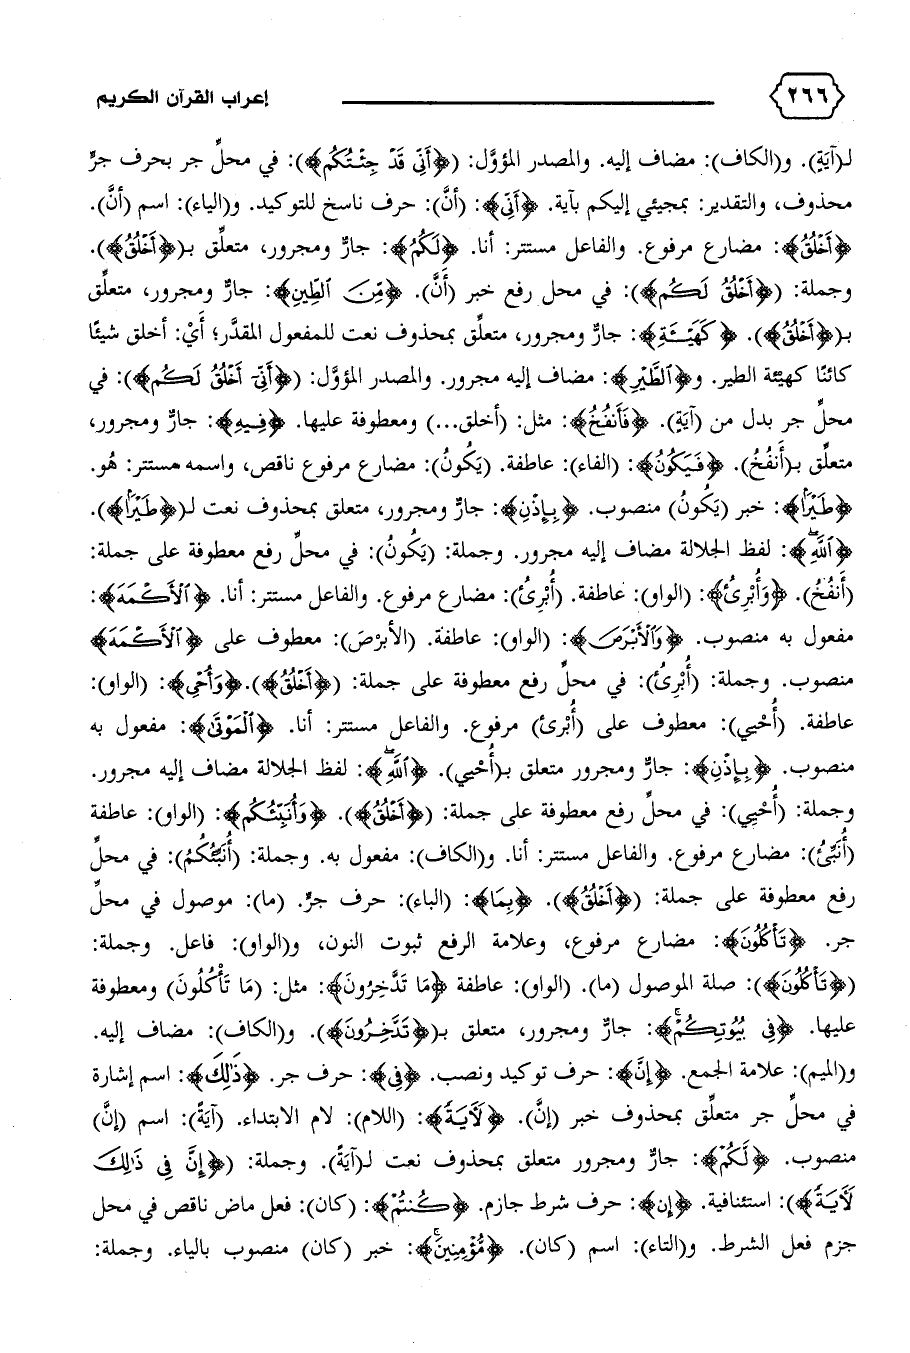 ٢٦٦ إعراب القرآن الكريم
لـ(آيَةٍ). و(الكاف): مضاف إليه. والمصدر المؤوَّل: (﴿أَنِّي قَدْ جِئْتُكُم﴾): في محلِّ جر بحرف جرٍّ
محذوف، والتقدير: بمجيئي إليكم بآية. ﴿أَنِّي﴾: (أنَّ): حرف ناسخ للتوكيد. و(الياء): اسم (أنَّ).
﴿أَخْلُقُ﴾: مضارع مرفوع. والفاعل مستتر: أنا. ﴿لَكُمْ﴾: جارٌّ ومجرور، متعلِّق بـ(﴿أَخْلُقُ﴾).
وجملة: (﴿أَخْلُقُ لَكُم﴾): في محل رفع خبر (أَنَّ). ﴿مِّنَ ٱلطِّينِ﴾: جارٌّ ومجرور، متعلِّق
بـ(﴿أَخْلُقُ﴾). ﴿كَهَيْـَٔةِ﴾: جارٌّ ومجرور، متعلِّق بمحذوف نعت للمفعول المقدَّر؛ أَيْ: أخلق شيئًا
كائنًا كهيئة الطير. و﴿ٱلطَّيْرِ﴾: مضاف إليه مجرور. والمصدر المؤوَّل: (﴿أَنِّيٓ أَخْلُقُ لَكُم﴾): في
محلِّ جر بدل من (آيَةٍ). ﴿فَأَنفُخُ﴾: مثل: (أخلق...) ومعطوفة عليها. ﴿فِيهِ﴾: جارٌّ ومجرور،
متعلِّق بـ(أَنفُخُ). ﴿فَيَكُونُ﴾: (الفاء): عاطفة. (يَكُونُ): مضارع مرفوع ناقص، واسمه مستتر: هُو.
﴿طَيْرًا﴾: خبر (يَكُونُ) منصوب. ﴿بِإِذْنِ﴾: جارٌّ ومجرور، متعلق بمحذوف نعت لـ(﴿طَيْرًا﴾).
﴿ٱللَّهِۖ﴾: لفظ الجلالة مضاف إليه مجرور. وجملة: (يَكُونُ): في محلِّ رفع معطوفة على جملة:
(أَنفُخُ). ﴿وَأُبْرِئُ﴾: (الواو): عاطفة. (أُبْرِئُ): مضارع مرفوع. والفاعل مستتر: أنا. ﴿ٱلْأَكْمَهَ﴾:
مفعول به منصوب. ﴿وَٱلْأَبْرَصَ﴾: (الواو): عاطفة. (الأَبرْصَ): معطوف على ﴿ٱلْأَكْمَهَ﴾
منصوب. وجملة: (أُبْرِئُ): في محلِّ رفع معطوفة على جملة: (﴿أَخْلُقُ﴾).﴿وَأُحْيِ﴾: (الواو):
عاطفة. (أُحْيي): معطوف على (أُبْرئ) مرفوع. والفاعل مستتر: أنا. ﴿ٱلْمَوْتَىٰ﴾: مفعول به
منصوب. ﴿بِإِذْنِ﴾: جارٌّ ومجرور متعلق بـ(أُحْيي). ﴿ٱللَّهِۖ﴾: لفظ الجلالة مضاف إليه مجرور.
وجملة: (أُحْيِي): في محلِّ رفع معطوفة على جملة: (﴿أَخْلُقُ﴾). ﴿وَأُنَبِّئُكُم﴾: (الواو): عاطفة
(أُنَبِّئُ): مضارع مرفوع. والفاعل مستتر: أنا. و(الكاف): مفعول به. وجملة: (أُنَبِّئُكُمْ): في محلِّ
رفع معطوفة على جملة: (﴿أَخْلُقُ﴾). ﴿بِمَا﴾: (الباء): حرف جرٍّ. (ما): موصول في محلِّ
جر. ﴿تَأْكُلُونَ﴾: مضارع مرفوع، وعلامة الرفع ثبوت النون، و(الواو): فاعل. وجملة:
(﴿تَأْكُلُونَ﴾): صلة الموصول (ما). (الواو): عاطفة ﴿مَا تَدَّخِرُونَ﴾: مثل: (مَا تَأْكُلُونَ) ومعطوفة
عليها. ﴿فِي بُيُوتِكُمْۚ﴾: جارٌّ ومجرور، متعلق بـ(﴿تَدَّخِرُونَ﴾). و(الكاف): مضاف إليه.
و(الميم): علامة الجمع. ﴿إِنَّ﴾: حرف توكيد ونصب. ﴿فِي﴾: حرف جر. ﴿ذَٰلِكَ﴾: اسم إشارة
في محلِّ جر متعلِّق بمحذوف خبر (إنَّ). ﴿لَأٓيَةً﴾: (اللام): لام الابتداء. (آيَةً): اسم (إنَّ)
منصوب. ﴿لَّكُمْ﴾: جارٌّ ومجرور متعلق بمحذوف نعت لـ(آيَةً). وجملة: (﴿إِنَّ فِي ذَٰلِكَ
لَأٓيَةً﴾): استئنافية. ﴿إِن﴾: حرف شرط جازم. ﴿كُنتُمْ﴾: (كان): فعل ماض ناقص في محل
جزم فعل الشرط. و(التاء): اسم (كان). ﴿مُّؤْمِنِينَۚ﴾: خبر (كان) منصوب بالياء. وجملة: